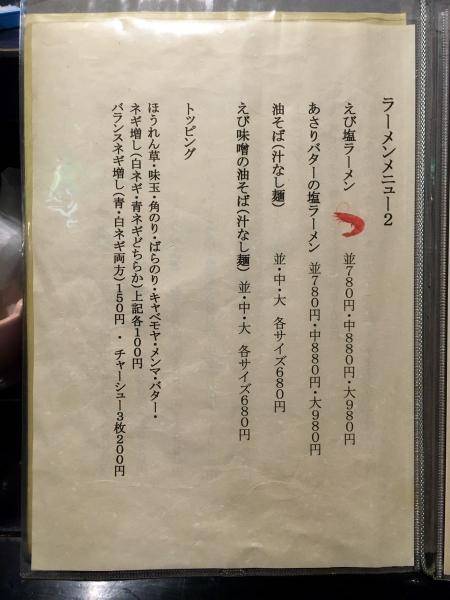 ラーメンメニュー2
えび塩ラーメン 並780円・中880円・大980円
あさりバターの塩ラーメン 並780円・中880円・大980円
油そば(汁なし麺) 並・中・大 各サイズ680円
えび味噌の油そば(汁なし麺) 並・中・大 各サイズ680円
トッピング
ほうれん草・味玉・角のり・ばらのり・キャベモヤ・メンマ・バター・
ネギ増し(白ネギ・青ネギどちらか)上記各100円
バランスネギ増し(青・白ネギ両方)150円 ・ チャーシュー3枚200円